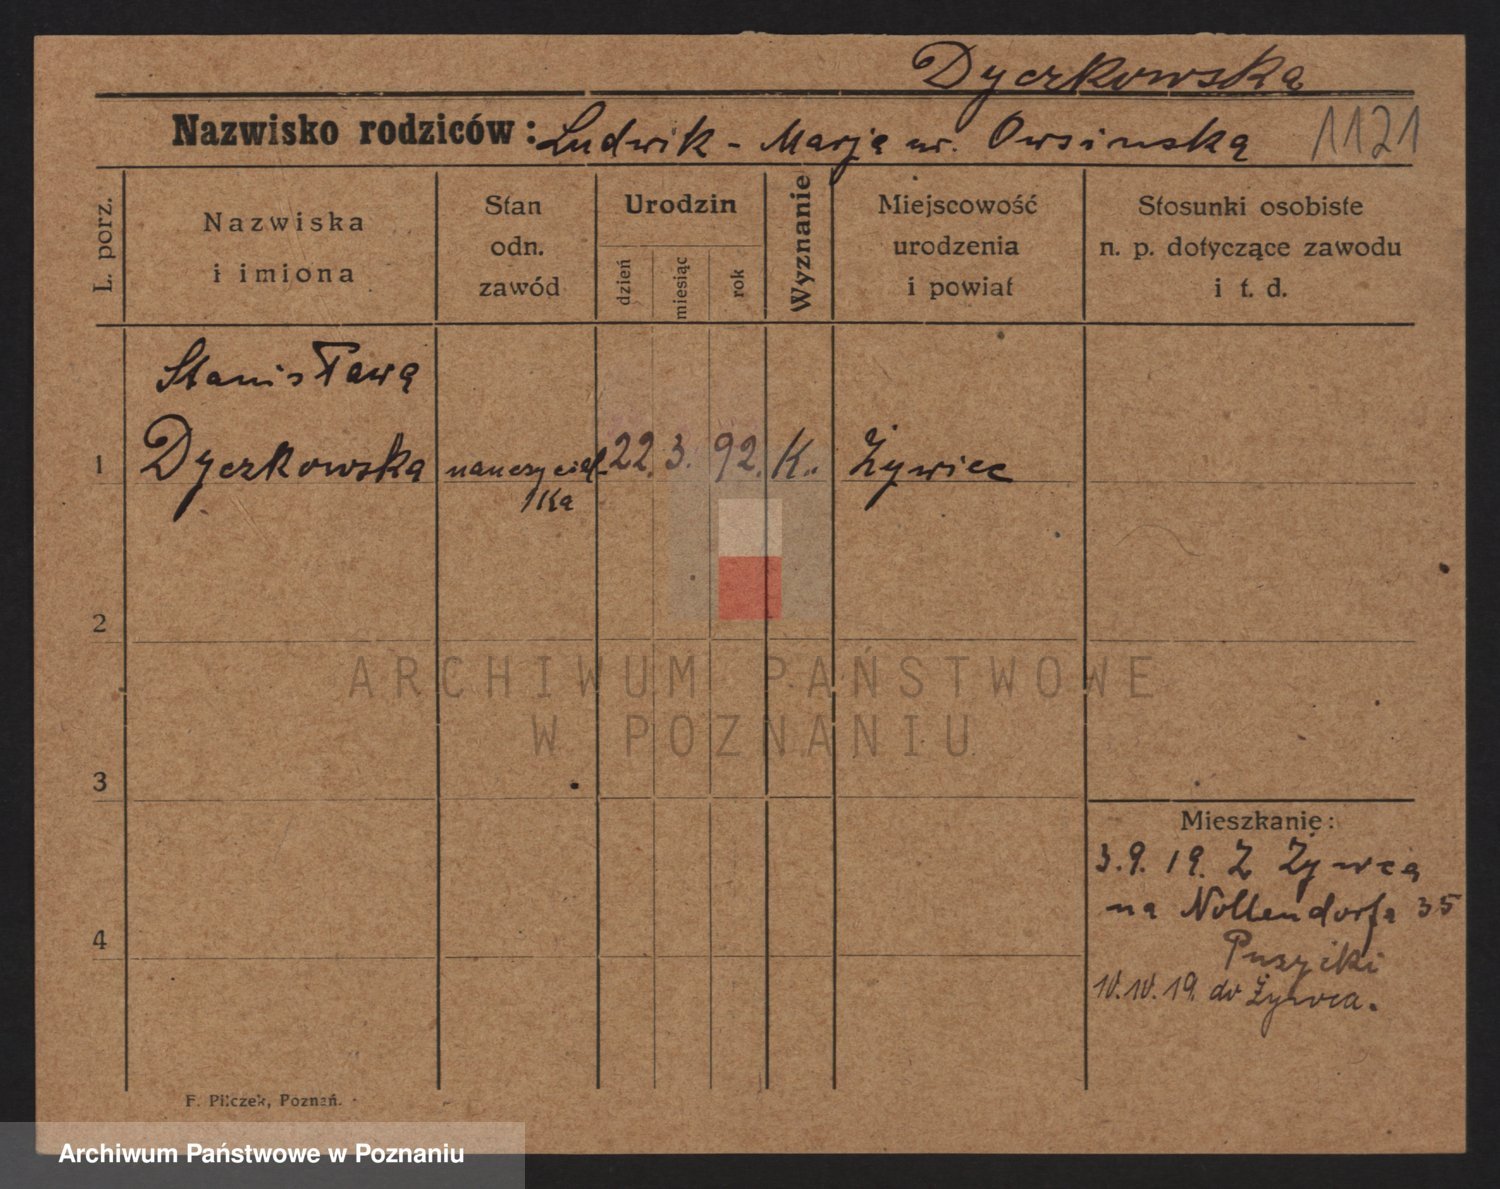 Dyczkowska
Nazwisko rodziców: Ludwik - Marja ur. Owsinska 1121
L. porz.
Nazwiska
i imiona
Stan
odn.
zawód
Urodzin
dzień
miesiąc
rok
Wyznanie
Miejscowość
urodzenia
i powiat
Stosunki osobiste
n. p. dotyczące zawodu
i t. d.
Stanisława
1 Dyczkowska nauczyciel- 22. 3. 92. K. Żywiec
ka
2
ARCHIWUM PAŃSTWOWE
W POZNANIU
3
Mieszkanie:
3.9.19. Z Żywca
na Nollendorfa 35
4
10.10.19. do Żywca.
F. Pilczek, Poznań.
Archiwum Państwowe w Poznaniu